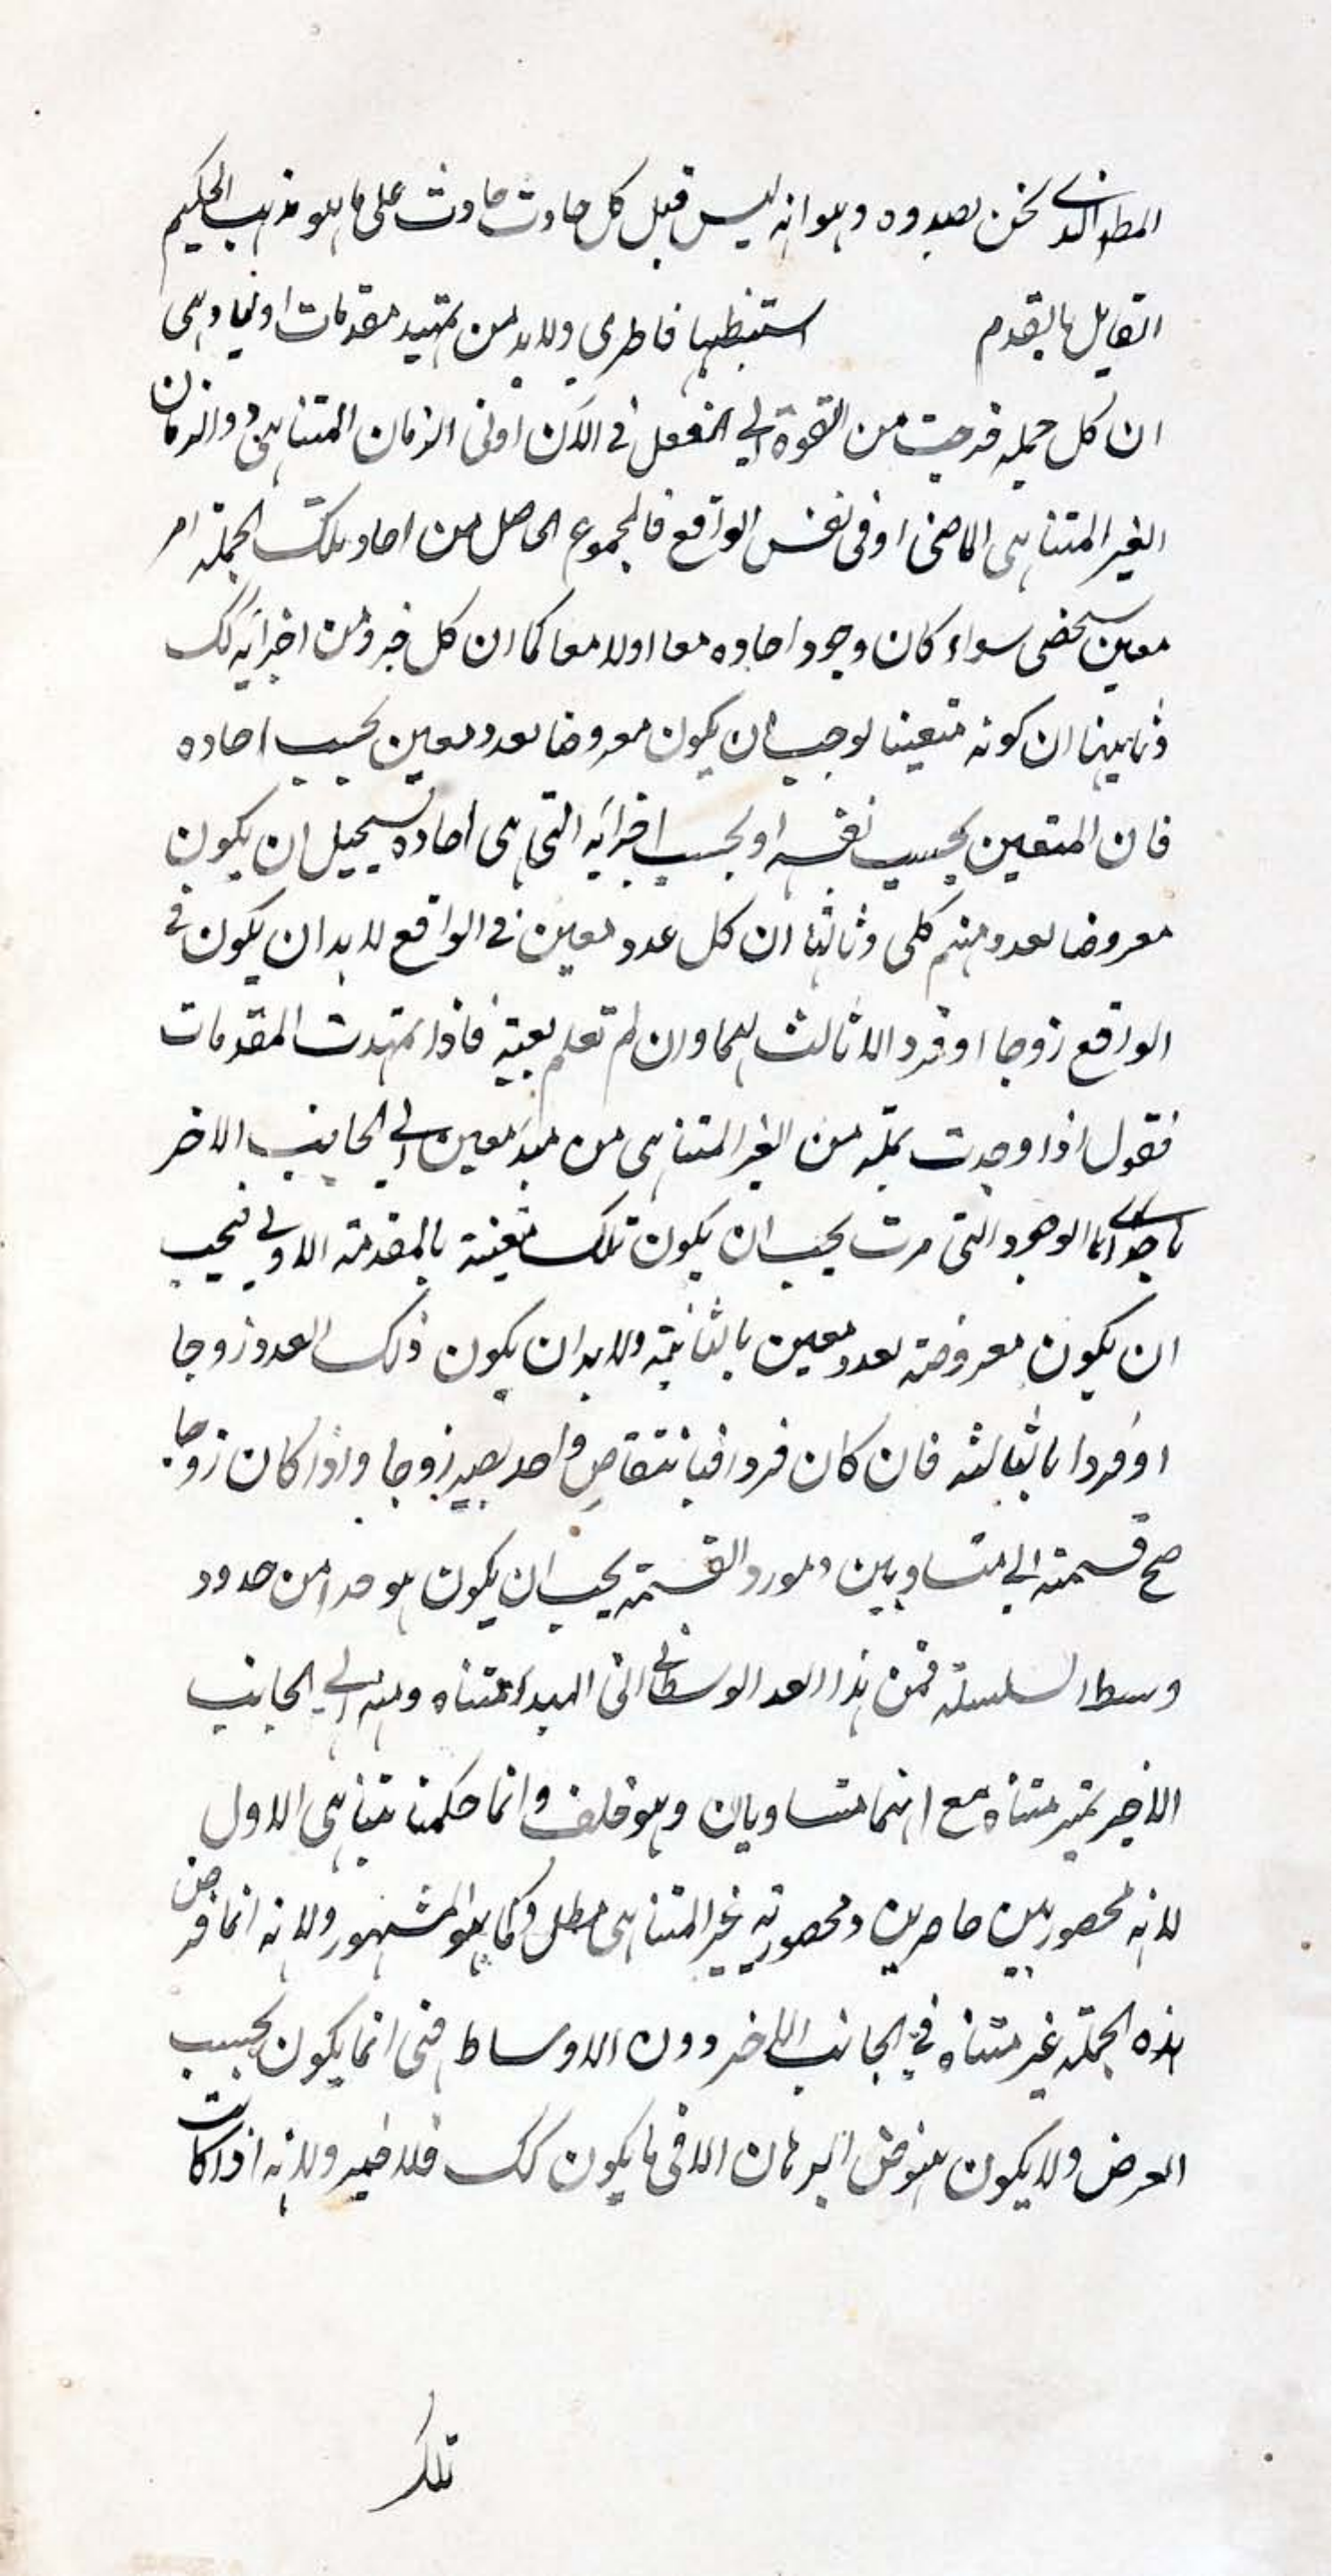 المط الذى نحن بصدده وهو انه ليس قبل كل حادث حادث على ما هو مذهب الحكيم
القايل بالقدم استنبطها خاطرى ولا بد من تمهيد مقدمات اوليها وهى
ان كل جمله خرجت من القوة الى الفعل فى الآن او فى الزمان المتناهى او الزمان
الغير المتناهى الماضى او فى نفس الواقع فالمجموع الحاصل من احاد تلك الجملة امر
معين شخصى سواء كان وجود احاده معا او لا معا كما ان كل جزء من اجزائه كك
وثانيها ان كونه متعينا يوجب ان يكون معروضا لعدد معين بحسب احاده
فان المتعين بحسب نفسه او بحسب اجزائه التى هى احاده يستحيل ان يكون
معروضا لعدد مبهم كلى وثالثها ان كل عدد معين فى الواقع لا بد ان يكون فى
الواقع زوجا او فردا لا ثالث لهما وان لم تعلم بعينه فاذا تمهدت المقدمات
فنقول اذا وجدت جملة من الغير المتناهى من مبدء معين الى الجانب الاخر
باحدى انحاء الوجود التى مرت يجب ان يكون تلك متعينة بالمقدمة الاولى فيجب
ان يكون معروضة لعدد معين بالثانية ولا بد ان يكون ذلك العدد زوجا
او فردا بالثالثة فان كان فردا فبانتقاص واحد يصير زوجا واذا كان زوجا
صح قسمته الى متساويين ومورد القسمة يجب ان يكون هو حدا من حدود
وسط السلسلة فمن هذا الحد الوسطانى الى المبدء متناه ومنه الى الجانب
الاخير غير متناه مع انهما متساويان وهو خلف وانما حكمنا بتناهى الاول
لانه محصور بين حاصرين ومحصورية غير المتناهى مطل كما هو المشهور ولانه انما فرض
هذه الجملة غير متناه فى الجانب الاخر دون الاوساط فهى انما يكون بحسب
الفرض ولا يكون بنهوض البرهان الا فى ما يكون كك فلا ضير ولانه اذا كانت
تلك